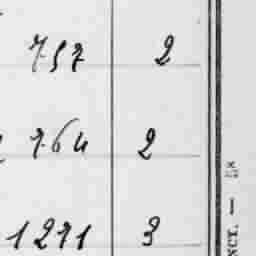 757 2
764 2
1271 3
NCT. —